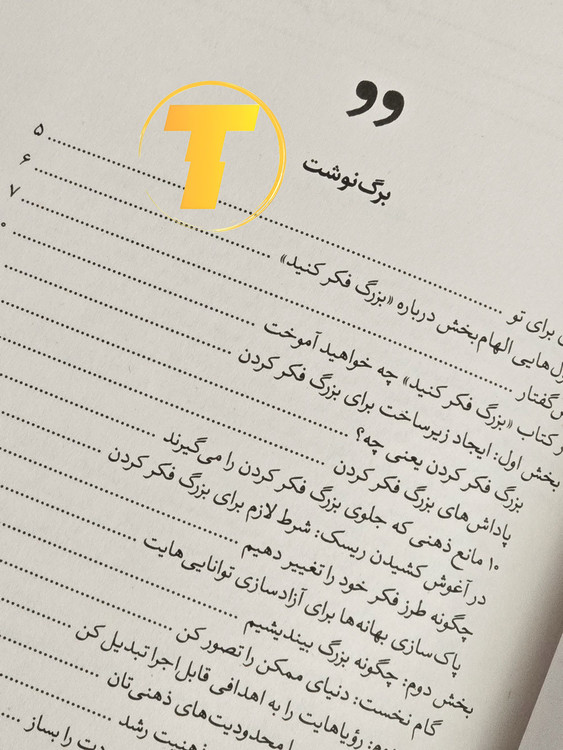 ”
T
برگ‌نوشت
برای تو ........ ۵
الهام‌بخش درباره «بزرگ فکر کنید» ........ ۶
........ ۷
کتاب «بزرگ فکر کنید» چه خواهید آموخت ........
بخش اول: ایجاد زیرساخت برای بزرگ فکر کردن ........
بزرگ فکر کردن یعنی چه؟ ........
پاداش‌های بزرگ فکر کردن ........
۱۰ مانع ذهنی که جلوی بزرگ فکر کردن را می‌گیرند ........
در آغوش کشیدن ریسک: شرط لازم برای بزرگ فکر کردن ........
چگونه طرز فکر خود را تغییر دهیم ........
پاک‌سازی بهانه‌ها برای آزادسازی توانایی‌هایت ........
بخش دوم: چگونه بزرگ بیندیشیم ........
گام نخست: دنیای ممکن را تصور کن ........
رؤیاهایت را به اهدافی قابل‌اجرا تبدیل کن ........
محدودیت‌های ذهنی‌تان ........
ذهنیت رشد ........
را بساز ........